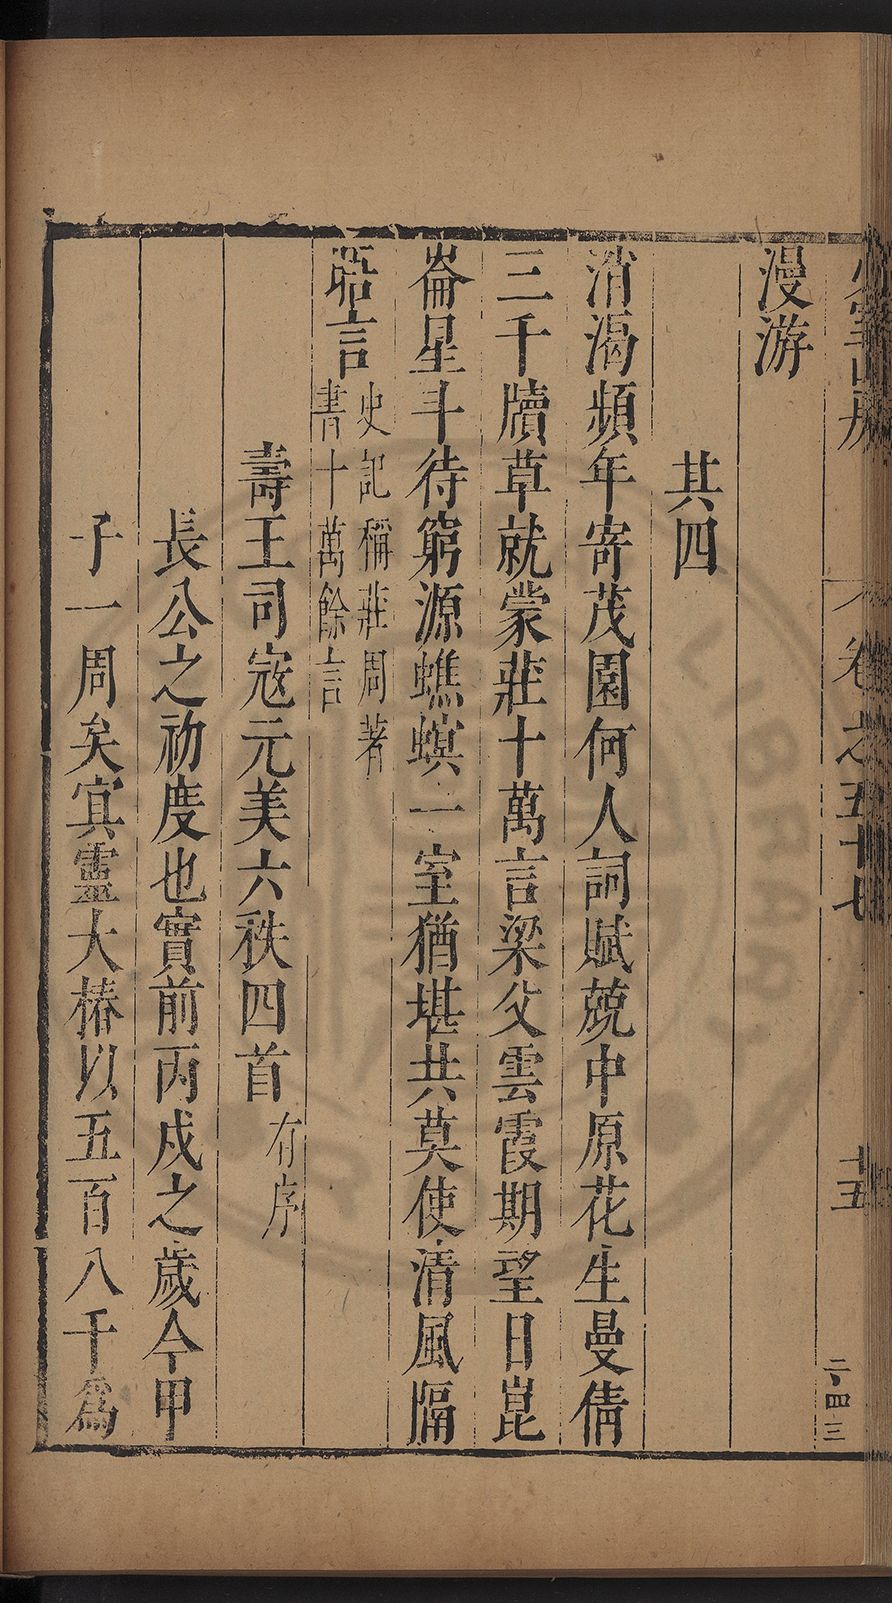 少室山房
卷之五十七
十五
二四三
漫游
其四
消渴頻年寄茂園何人詞賦菀中原花生曼倩
三千牘草就蒙莊十萬言梁父雲霞期望日崑
崙星斗待窮源蟭螟一室猶堪共莫使清風隔
晤言史記稱莊周著
書十萬餘言
壽王司寇元美六秩四首有序
長公之初度也實前丙戌之歲今甲
子一周矣冥靈大椿以五百八千爲